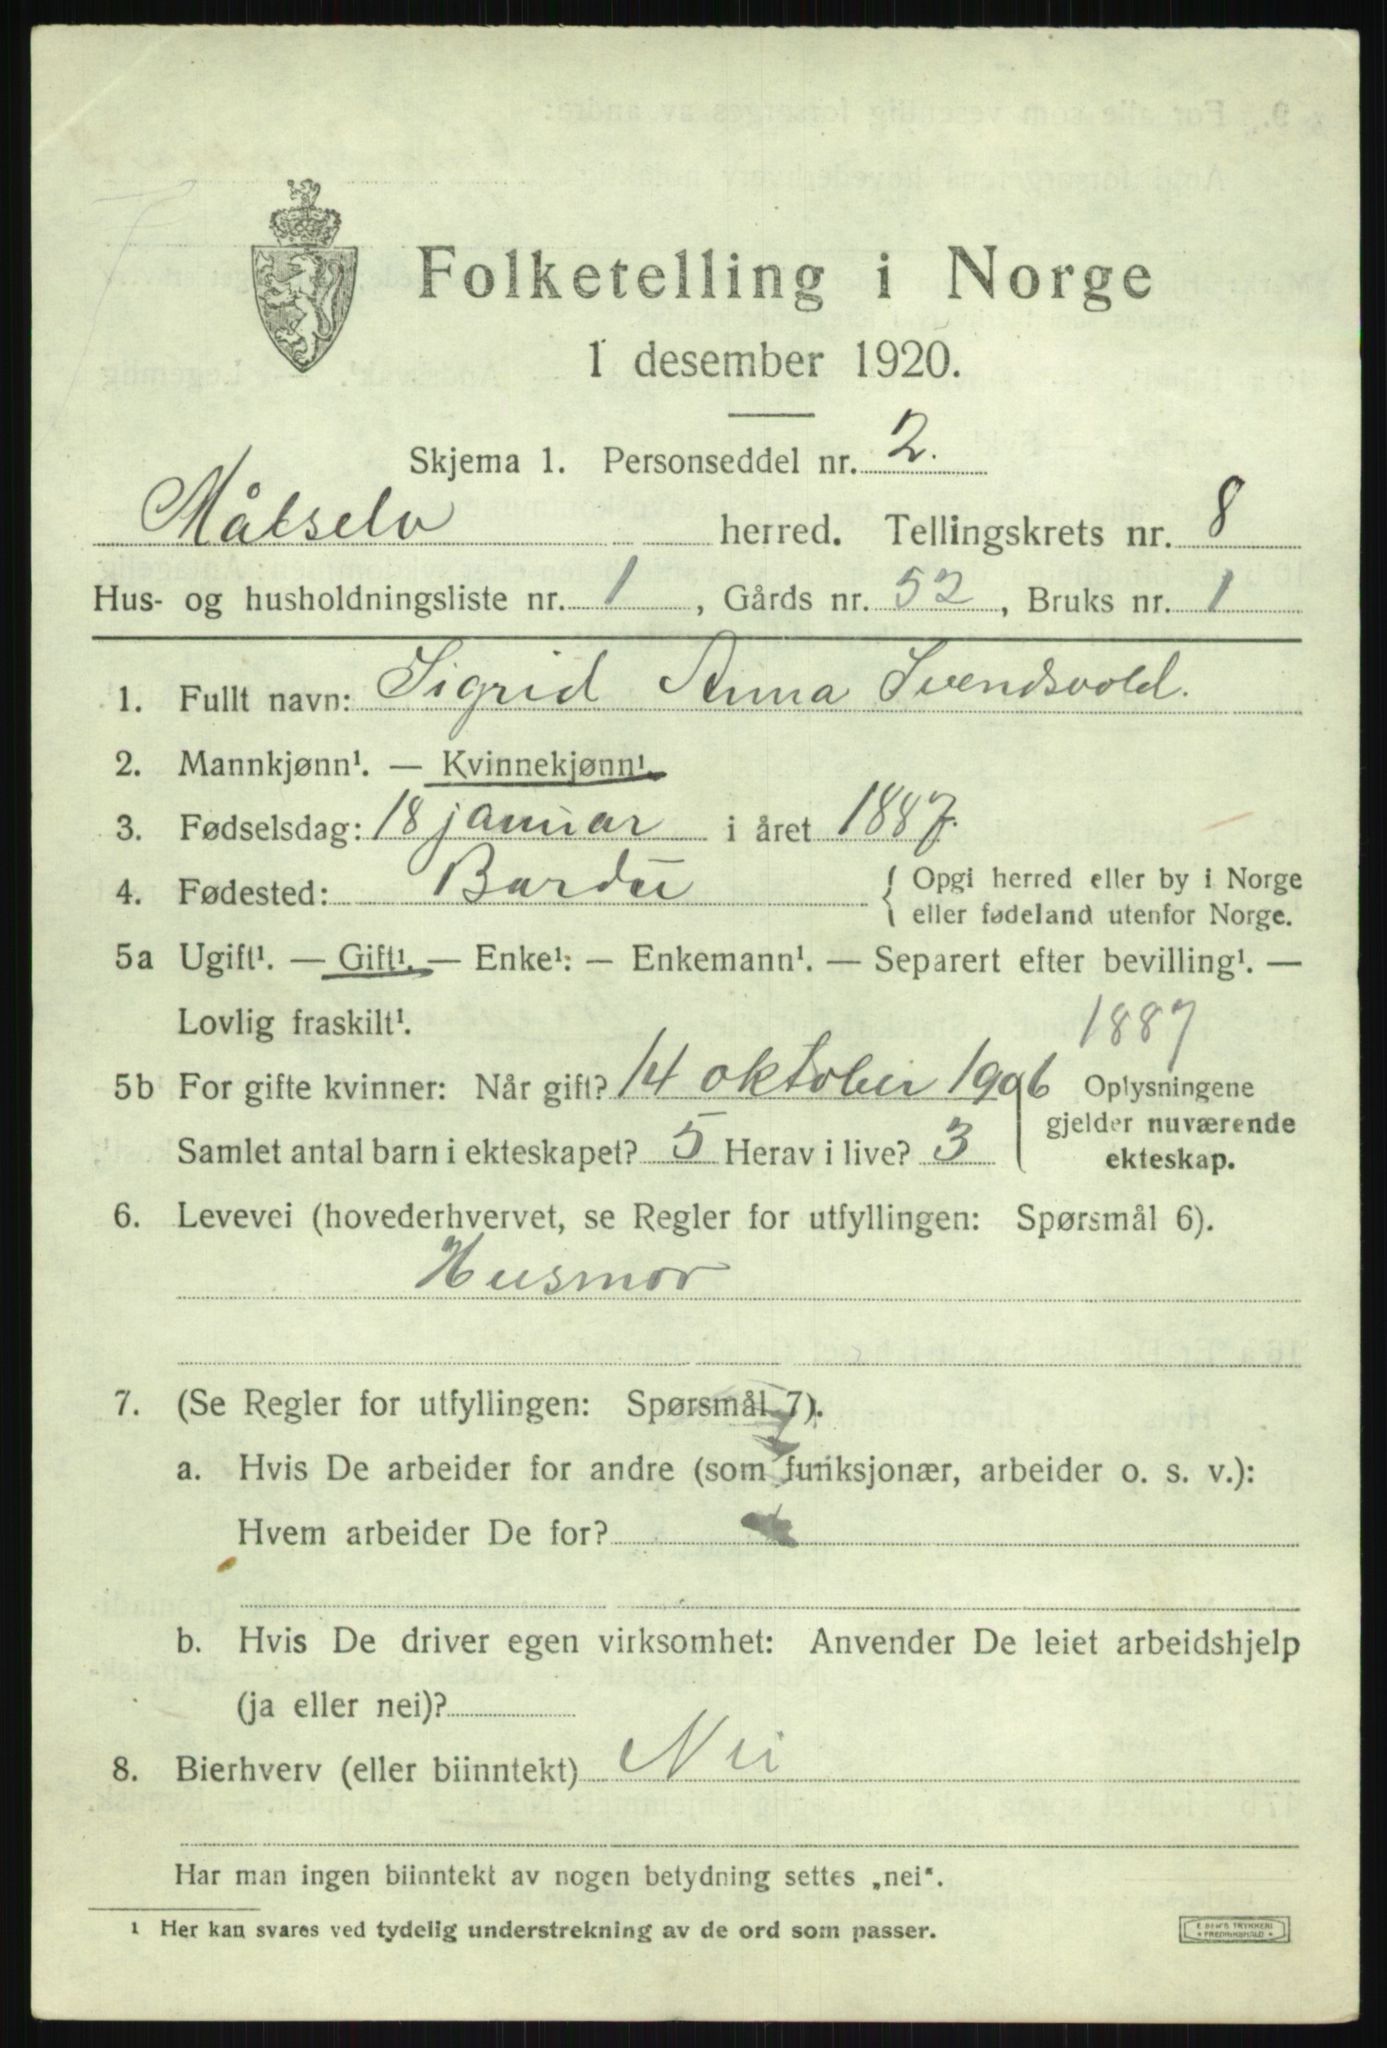 Folketelling i Norge
1 desember 1920.
Skjema 1. Personseddel nr. 2.
Målselv herred. Tellingskrets nr. 8
Hus- og husholdningsliste nr. 1, Gårds nr. 52, Bruks nr. 1
1. Fullt navn: Sigrid Anna Svendsvold.
2. Mannkjønn¹. — Kvinnekjønn¹.
3. Fødselsdag: 18 januar i året 1887.
4. Fødested: Bardu { Opgi herred eller by i Norge
eller fødeland utenfor Norge.
5a Ugift¹. — Gift¹. — Enke¹: — Enkemann¹. — Separert efter bevilling¹. —
Lovlig fraskilt¹.
1887
5b For gifte kvinner: Når gift? 14 oktober 1906 Oplysningene
gjelder nuværende
Samlet antal barn i ekteskapet? 5 Herav i live? 3 ekteskap.
6. Levevei (hovederhvervet, se Regler for utfyllingen: Spørsmål 6).
Husmor
7. (Se Regler for utfyllingen: Spørsmål 7).
a. Hvis De arbeider for andre (som funksjonær, arbeider o. s. v.):
Hvem arbeider De for?
b. Hvis De driver egen virksomhet: Anvender De leiet arbeidshjelp
(ja eller nei)?
8. Bierhverv (eller biinntekt) Nei
Har man ingen biinntekt av nogen betydning settes „nei“.
¹ Her kan svares ved tydelig understrekning av de ord som passer.
E. SEM'S TRYKKERI
FREDRIKSHALD